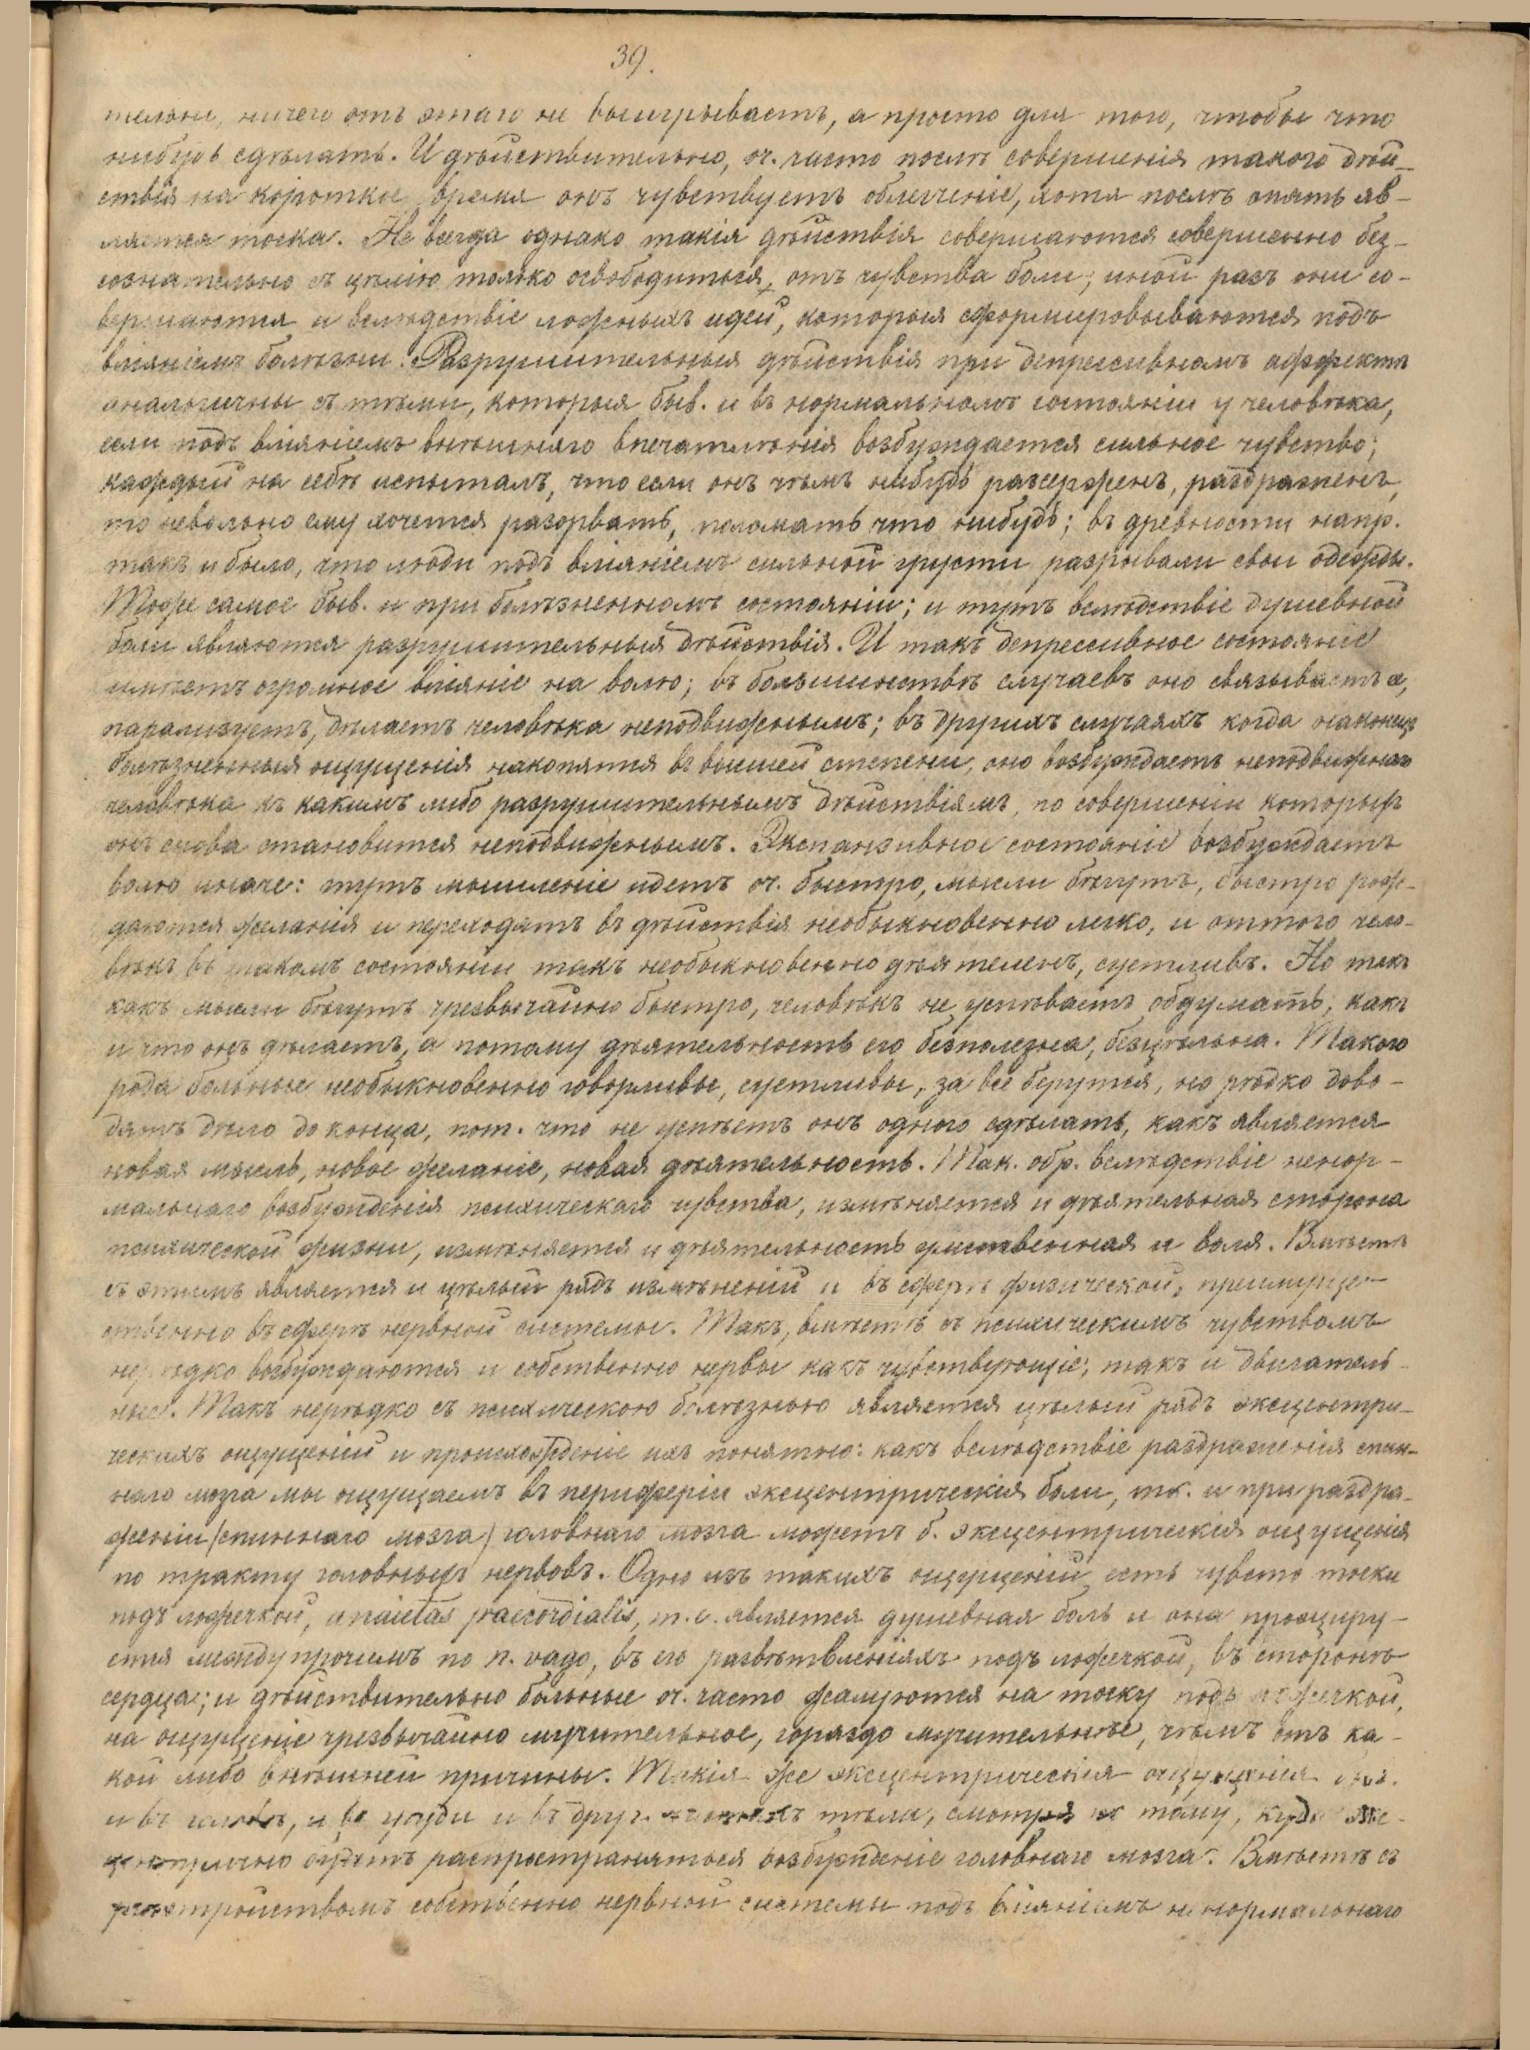 39.
тельни, ничего отъ этаго не выигрываетъ, а просто для того, чтобы что
нибудь сдѣлать. И дѣйствительно, оч. часто послѣ совершенія такого дѣй-
ствія на короткое время онъ чувствуетъ облегченіе, хотя послѣ опять яв-
ляется тоска. Не всегда однако такія дѣйствія совершаются совершенно без-
сознательно съ цѣлію только освободиться, отъ чувства боли; иной разъ они со-
вершаются и вслѣдствіе ложныхъ идей, которыя сформировываются подъ
вліяніемъ болѣзни. Разрушительныя дѣйствія при депрессивномъ аффектѣ
аналогичны съ тѣми, которыя быв. и въ нормальномъ состояніи у человѣка,
если подъ вліяніемъ внѣшняго впечатлѣнія возбуждается сильное чувство;
каждый на себѣ испыталъ, что если онъ чѣмъ нибудь разсерженъ, раздраженъ,
то невольно ему хочется разорвать, поломать что нибудь; въ древности напр.
такъ и было, что люди подъ вліяніемъ сильной грусти разрывали свои одежды.
Тоже самое быв. и при болѣзненномъ состояніи; и тутъ вслѣдствіе душевной
боли являются разрушительныя дѣйствія. И такъ депрессивное состояніе
имѣетъ огромное вліяніе на волю; въ большинствѣ случаевъ оно связываетъ ее,
парализуетъ, дѣлаетъ человѣка неподвижнымъ; въ другихъ случаяхъ когда наконецъ
болѣзненныя ощущенія накопятся въ высшей степени, оно возбуждаетъ неподвижнаго
человѣка къ какимъ либо разрушительнымъ дѣйствіямъ, по совершеніи которыхъ
онъ снова становится неподвижнымъ. Экспанзивное состояніе возбуждаетъ
волю иначе: тутъ мышленіе идетъ оч. быстро, мысли бѣгутъ, быстро рож-
даются желанія и переходятъ въ дѣйствія необыкновенно легко, и оттого чело-
вѣкъ въ такомъ состояніи такъ необыкновенно дѣятеленъ, суетливъ. Но такъ
какъ мысли бѣгутъ чрезвычайно быстро, человѣкъ не успѣваетъ обдумать, какъ
и что онъ дѣлаетъ, а потому дѣятельность его безполезна, безцѣльна. Такого
рода больные необыкновенно говорливы, суетливы, за все берутся, но рѣдко дово-
дятъ дѣло до конца, пот. что не успѣетъ онъ одного сдѣлать, какъ является
новая мысль, новое желаніе, новая дѣятельность. Так. обр. вслѣдствіе ненор-
мальнаго возбужденія психическаго чувства, измѣняется и дѣятельная сторона
психической жизни, измѣняется и дѣятельность умственная и воля. Вмѣстѣ
съ этимъ является и цѣлый рядъ измѣненій и въ сферѣ физической, преимуще-
ственно въ сферѣ нервной системы. Такъ, вмѣстѣ съ психическимъ чувствомъ
нерѣдко возбуждаются и собственно нервы какъ чувствующіе, такъ и двигатель-
ные. Такъ нерѣдко съ психическою болѣзнью является цѣлый рядъ эксцентри-
ческихъ ощущеній и происхожденіе ихъ понятно: какъ вслѣдствіе раздраженія спин-
наго мозга мы ощущаемъ въ периферіи эксцентрическія боли, тк. и при раздра-
женіи (спиннаго мозга) головнаго мозга можетъ б. эксцентрическія ощущенія
по тракту головныхъ нервовъ. Одно изъ такихъ ощущеній есть чувсто тоски
подъ ложечкой, anxietas praecordialis, т. е. является душевная боль и она проэциру-
ется между прочимъ по n. vago, въ его развѣтвленіяхъ подъ ложечкой, въ сторонѣ
сердца; и дѣйствительно больные оч. часто жалуются на тоску подъ ложечкой,
на ощущеніе чрезвычайно мучительное, гораздо мучительнѣе, чѣмъ отъ ка-
кой либо внѣшней причины. Такія же эксцентрическія ощущенія быв.
и въ головѣ, и въ груди и въ друг. частяхъ тѣла, смотря по тому, куда экс-
центрично будетъ распространяться возбужденіе головнаго мозга. Вмѣстѣ съ
разстройствомъ собственно нервной системы подъ вліяніемъ ненормальнаго